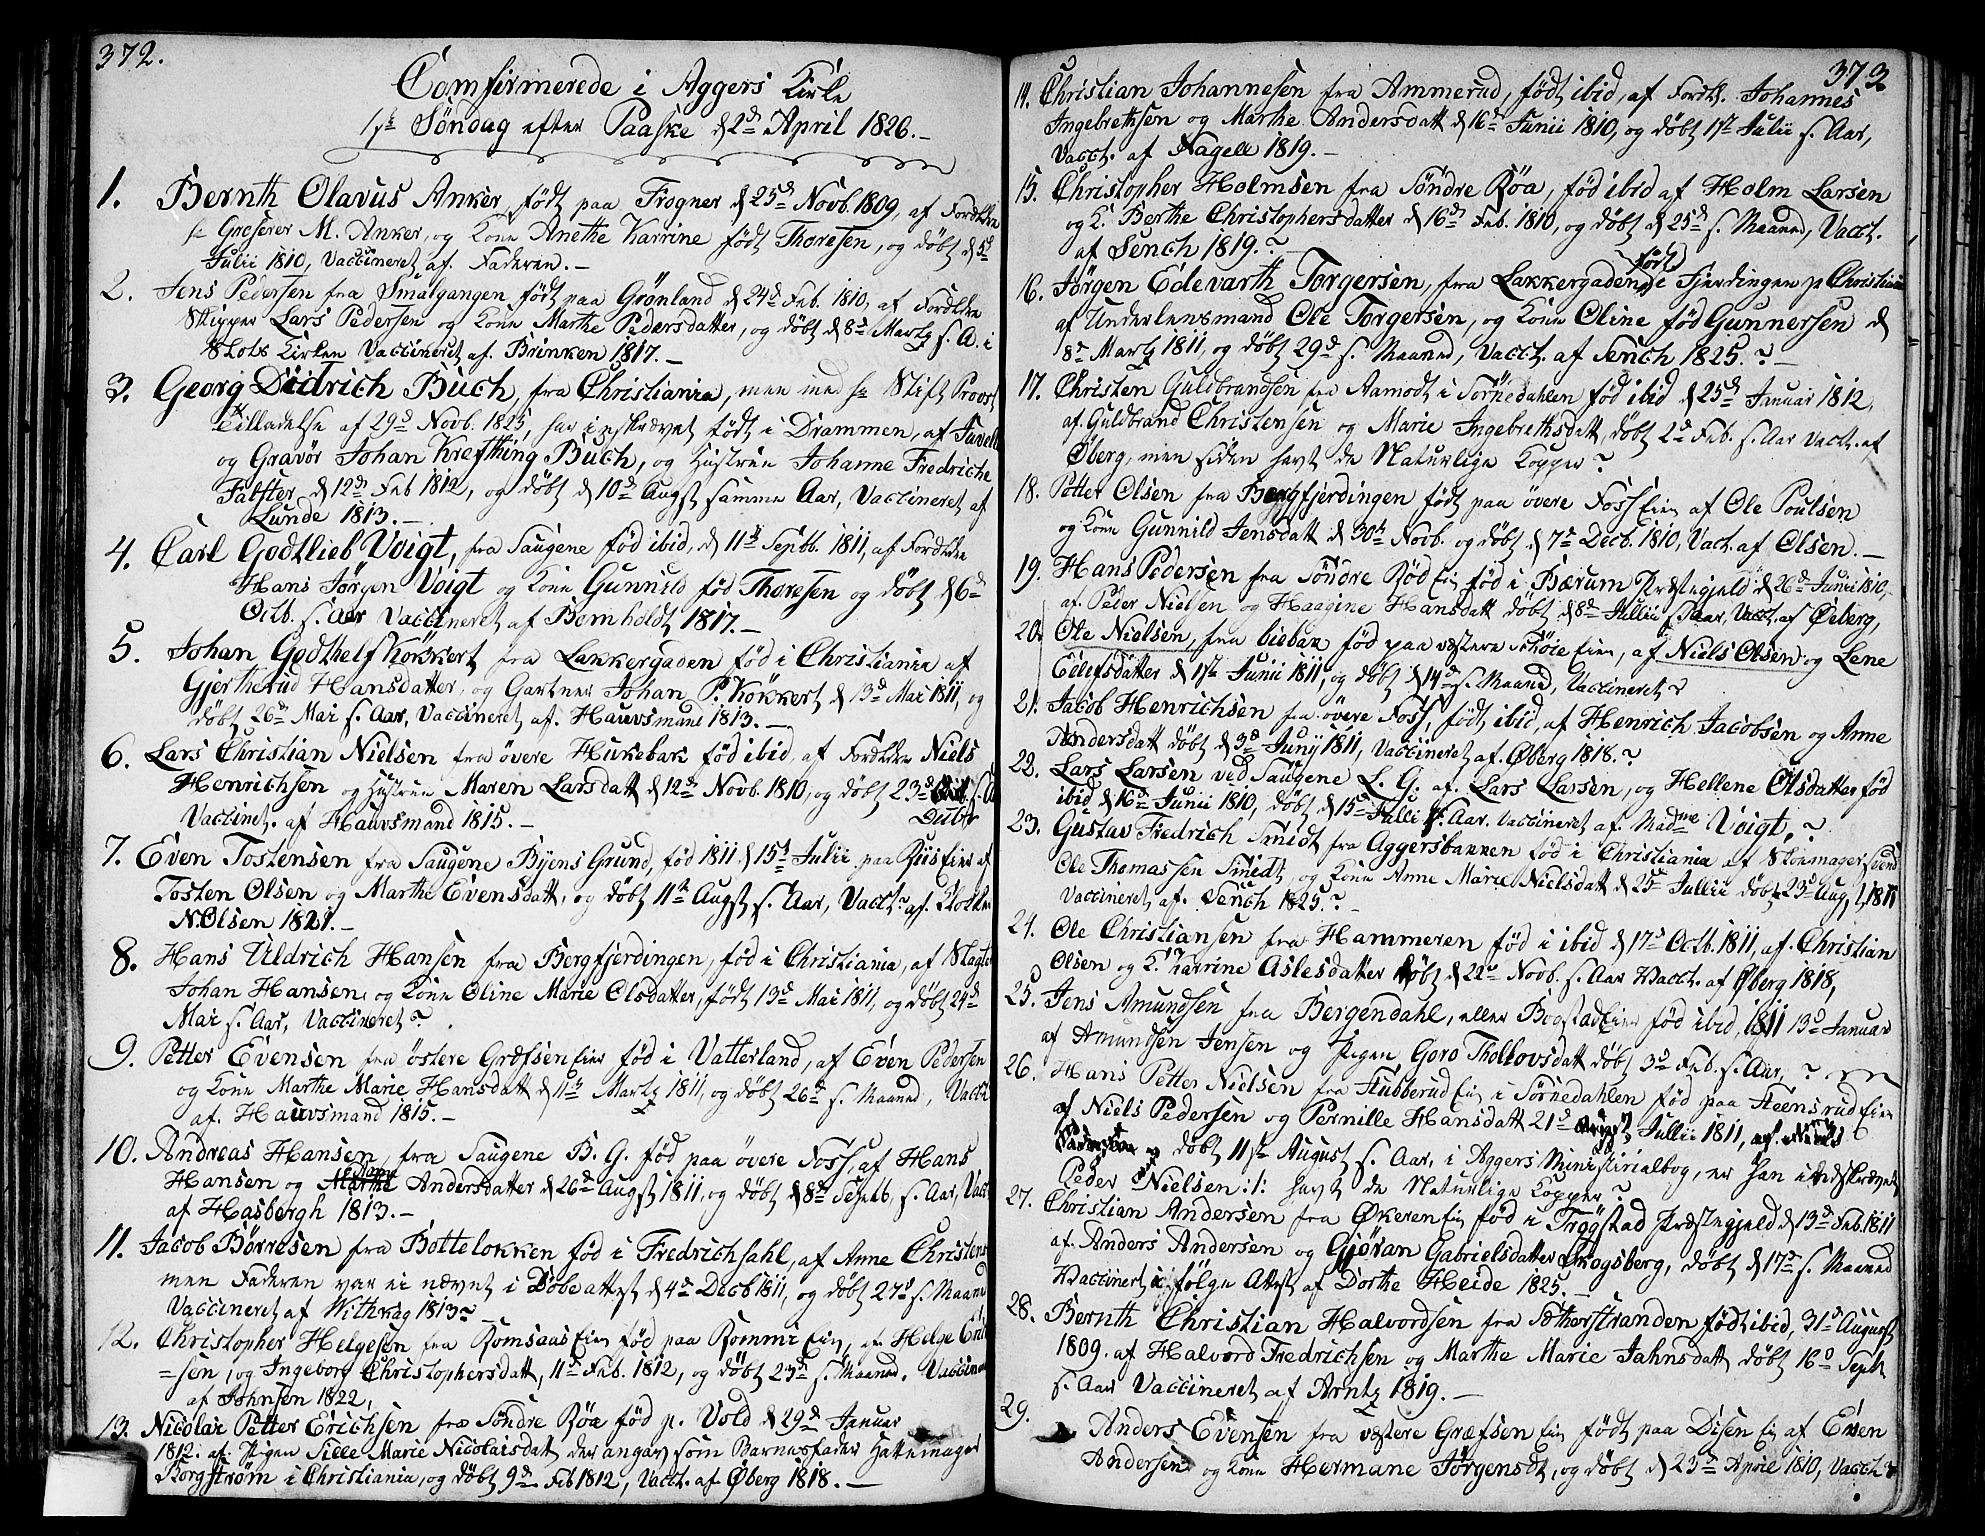 372.
Comfirmerede i Aggers Kirke
1ste Søndag efter Paaske d 2den April 1826.—
1. Bernth Olavus Anker, født paa Frogner d 25de Novb. 1809, af Forældre
Hr Groserer M. Anker, og Kone Anethe Karrine født Thoresen, og døbt d 5te
Julii 1810, Vaccineret af Faderen.—
2. Jens Pedersen fra Smalgangen født paa Grønland d 24de Feb. 1810, af Forældre
Skipper Lars Pedersen og Kone Marthe Pedersdatter, og døbt d 8de Martz s. A. i
Slots Kirken Vaccineret af Brinken 1817.—
3. Georg Didrich Buch, fra Christiania, men med Hr Stift Provst
Tilladelse af 29de Novb. 1825, her inskrævet født i Drammen, af Juvelle
og Gravør Johan Krefthing Buch, og Hustrue Johanne Fredriche
Falster d 12de Feb 1812, og døbt d 10de Augst samme Aar, Vaccineret af
Lunde 1813.—
4. Carl Godtlieb Voigt, fra Saugene fød ibid, d 11te Septb. 1811, af Forældre
Hans Jørgen Voigt og Kone Gunnild fød Thoresen og døbt d 6te
Octb. s. Aar Vaccineret af Bornholdt 1817.—
5. Johan Godthelf Køkkert fra Lakkergaden fød i Christiania af
Gjertherud Hansdatter, og Gartner Johan P. Køkkert d 13de Mai 1811, og
døbt 26de Mai s. Aar, Vaccineret af Hauvsmand 1813.—
6. Lars Christian Nielsen fra øvere Hukebak fød ibid, af Forældre Niels
Henrichsen og Hustrue Maren Larsdatt d 12de Novb. 1810, og døbt 23de s. A
Vaccinet. af Hauvsmand 1815.—
7. Even Tostensen fra Saugene Byens Grund, fød 1811 d 15de Julii paa Riis Eier af
Tosten Olsen og Marthe Evensdatt, og døbt 11te Augst s. Aar, Vacct. af Klokker
N. Olsen 1821.—
8. Hans Uldrich Hansen fra Bergfjerdingen, fød i Christiania, af Slagter
Johan Hansen, og Kone Oline Marie Olsdatter, født 13de Mai 1811, og døbt 24de
Mai s. Aar, Vaccineret?
9. Petter Evensen fra østere Græfsen Eier fød i Vatterland, af Even Pedersen
og Kone Marthe Marie Hansdatt d 11te Martz 1811, og døbt 26de s. Maaned, Vacct
af. Hauvsmand 1815.—
10. Andreas Hansen, fra Saugene B. G. fød paa øvere Foss, af Hans
Hansen og Anne Andersdatter d 26de Augst 1811, og døbt d 8de Septb. s. Aar, Vacct
af Hasbergh 1813.—
11. Jacob Børresen fra Bottelokken fød i Fredrichshahl, af Anne Christens
men Faderen var ei nævnet i Døbeattest d 4de Decb 1811, og døbt 27de s. Maaned
Vaccineret af Withkag 1813?
12. Christopher Helgesen fra Romsaas Eier fød paa Rommi Eie, af Helge Erich
=sen, og Ingeborg Christophersdatt, 11te Feb. 1812, og døbt 23de s. Maaned. Vaccineret
af Johnsen 1822,
13. Nicolai Petter Erichsen, fra Søndre Røa fød p. Vold d 29de Januar
1812. af Pigen Sille Marie Nicolaisdatt der angav som Barnefader Hattemager
Borgstrøm i Christiania, og døbt 9de Feb 1812, Vacct. af Øberg 1818.—
373
14. Christian Johannesen fra Ammerud, født ibid, af Fordl. Johannes
Ingebretksen og Marthe Andersdatt d 16de Junii 1810, og døbt 1ste Julii s. Aar,
Vacct. af Nagell 1819.—
15. Christopher Holmsen fra Søndre Røa, fød ibid af Holm Larsen
og K. Berthe Christophersdatter d 16de Feb. 1810, og døbt d 25de s. Maaned, Vacct.
af Sench 1819.?
født
16. Jørgen Edevarth Torgersen, fra Lakkergaden, i Fjerdingen p Christiania
af Underlensmand Ole Torgersen, og Kone Oline fød Gunnersen d
8de Martz 1811, og døbt 29de s. Maaned, Vacct. af Sench 1825.?
17. Christen Guldbrandsen fra Aamodt i Sørkedahlen fød ibid d 25de Januar 1812,
af Guldbrand Christensen og Marie Ingebrethsdatt, døbt 2de Feb. s. Aar Vacct. af
Øberg, men siden havt de Naturlige Kopper?
18. Petter Olsen fra Bergfjerdingen født paa øvere Foss Eier af Ole Poulsen
og Kone Gunnild Jensdatt d 30te Novb. og døbt d 7de Decb. 1810, Vact. af Olsen.—
19. Hans Pedersen fra Søndre Rød Eie fød i Bærum Præstegjeld d 26de Junii 1810,
af Peder Nielsen og Haagine Hansdatt døbt d 8de Jullii s. Aar, Vacct. af Øeberg,
20. Ole Nielsen, fra biebak fød paa vestere Høie Eier, af Niels Olsen og Lene
Edlefsdatter d 1ste Junii 1811, og døbt d 14de s. Maaned, Vaccineret?
21. Jacob Henrichsen fra øvere Foss, født ibid, af Henrich Jacobsen og Anne
Andersdatt døbt d 3de Junij 1811, Vaccineret af. Øberg 1818.?
22. Lars Larsen ved Saugene L. G. af. Lars Larsen, og Hellene Olsdatter fød
ibid d 16de Junii 1810, døbt d 15de Julli s. Aar. Vaccineret af Madme Voigt,?
23. Gustav Fredrich Smidt fra Aggersbakken fød i Christiania af Skomagersvend
Ole Thomassen Smidt, og Kone Anne Marie Nielsdatt d 25de Jullii døbt 23de Aug, 1811
Vaccineret af. Sench 1825.?
24. Ole Christiansen fra Hammeren fød i ibid d 17de Octb. 1811, af Christian
Olsen og K. Karrine Aslesdatter døbt d 22de Novb. s. Aar Vacct. af Øberg 1818,
25. Jens Amundsen fra Bergendahl, eller Bogstad Eier fød ibid, 1811 13de Januar
af Amundsen Jensen og Pigen Goro Thollovsdatt døbt 3de Feb. s. Aar,?
26. Hans Petter Nielsen fra Hubberud Eie i Sørkedahlen fød paa Steensrud Eier
af Niels Pedersen og Pernille Hansdatt 21de Jullii 1811,
og døbt 11te August s. Aar, i Aggers Ministirialbog, er han indskrævet
af Peder Nielsen :/: havt de Naturlige Kopper?
27. Christian Andersen fra Økeren Eie fød i Trøgstad Præstegjeld d 13de Feb. 1811
af. Anders Andersen og Gjøran Gabrielsdatter Skogsberg, døbt d 17de s. Maaned
Vaccinert i følge Attest af Dorthe Heide 1825.—
28. Bernth Christian Halvordsen fra Sætherstranden født ibid, 31te August
1809. af Halvord Fredrichsen og Marthe Marie Jahnsdatt døbt 16de Septb
s. Aar Vaccineret af Arntz 1819.—
29. Anders Evensen fra vestere Græfsen Eie født paa Disen Eie af Even
Andersen og Kone Hermane Jørgensdt, og døbt d 23de April 1810, Vacct?